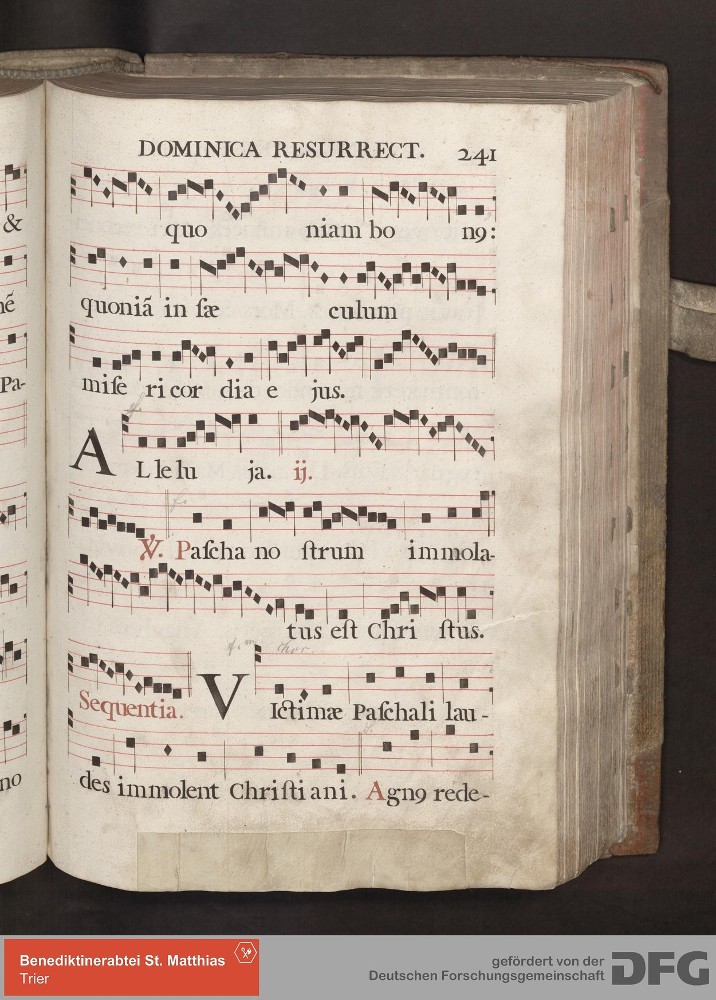 DOMINICA RESURRECT. 241
&
quo niam bo n9:
quoniã in ſæ culum
Pa-
miſe ri cor dia e jus.
A L le lu ja. ij.
℣. Paſcha no ſtrum immola-
tus eſt Chri ſtus.
Sequentia. V Ictimæ Paſchali lau-
no
des immolent Chriſti ani. Agn9 rede-
Benediktinerabtei St. Matthias
Trier
gefördert von der
Deutschen Forschungsgemeinschaft
DFG